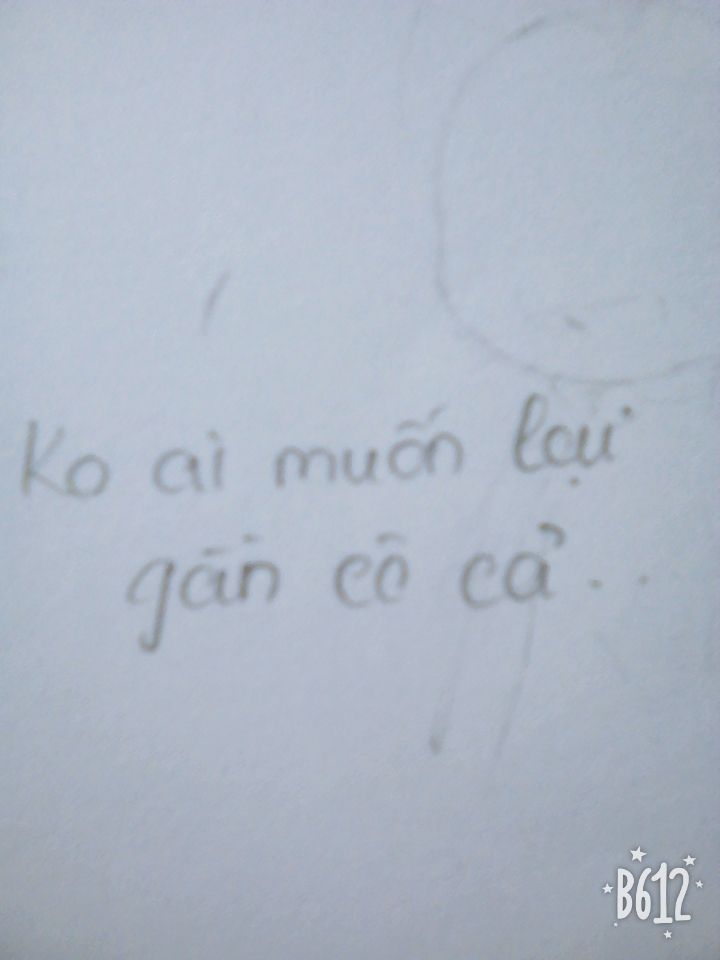 Ko ai muốn lại
gần cô cả..
B612